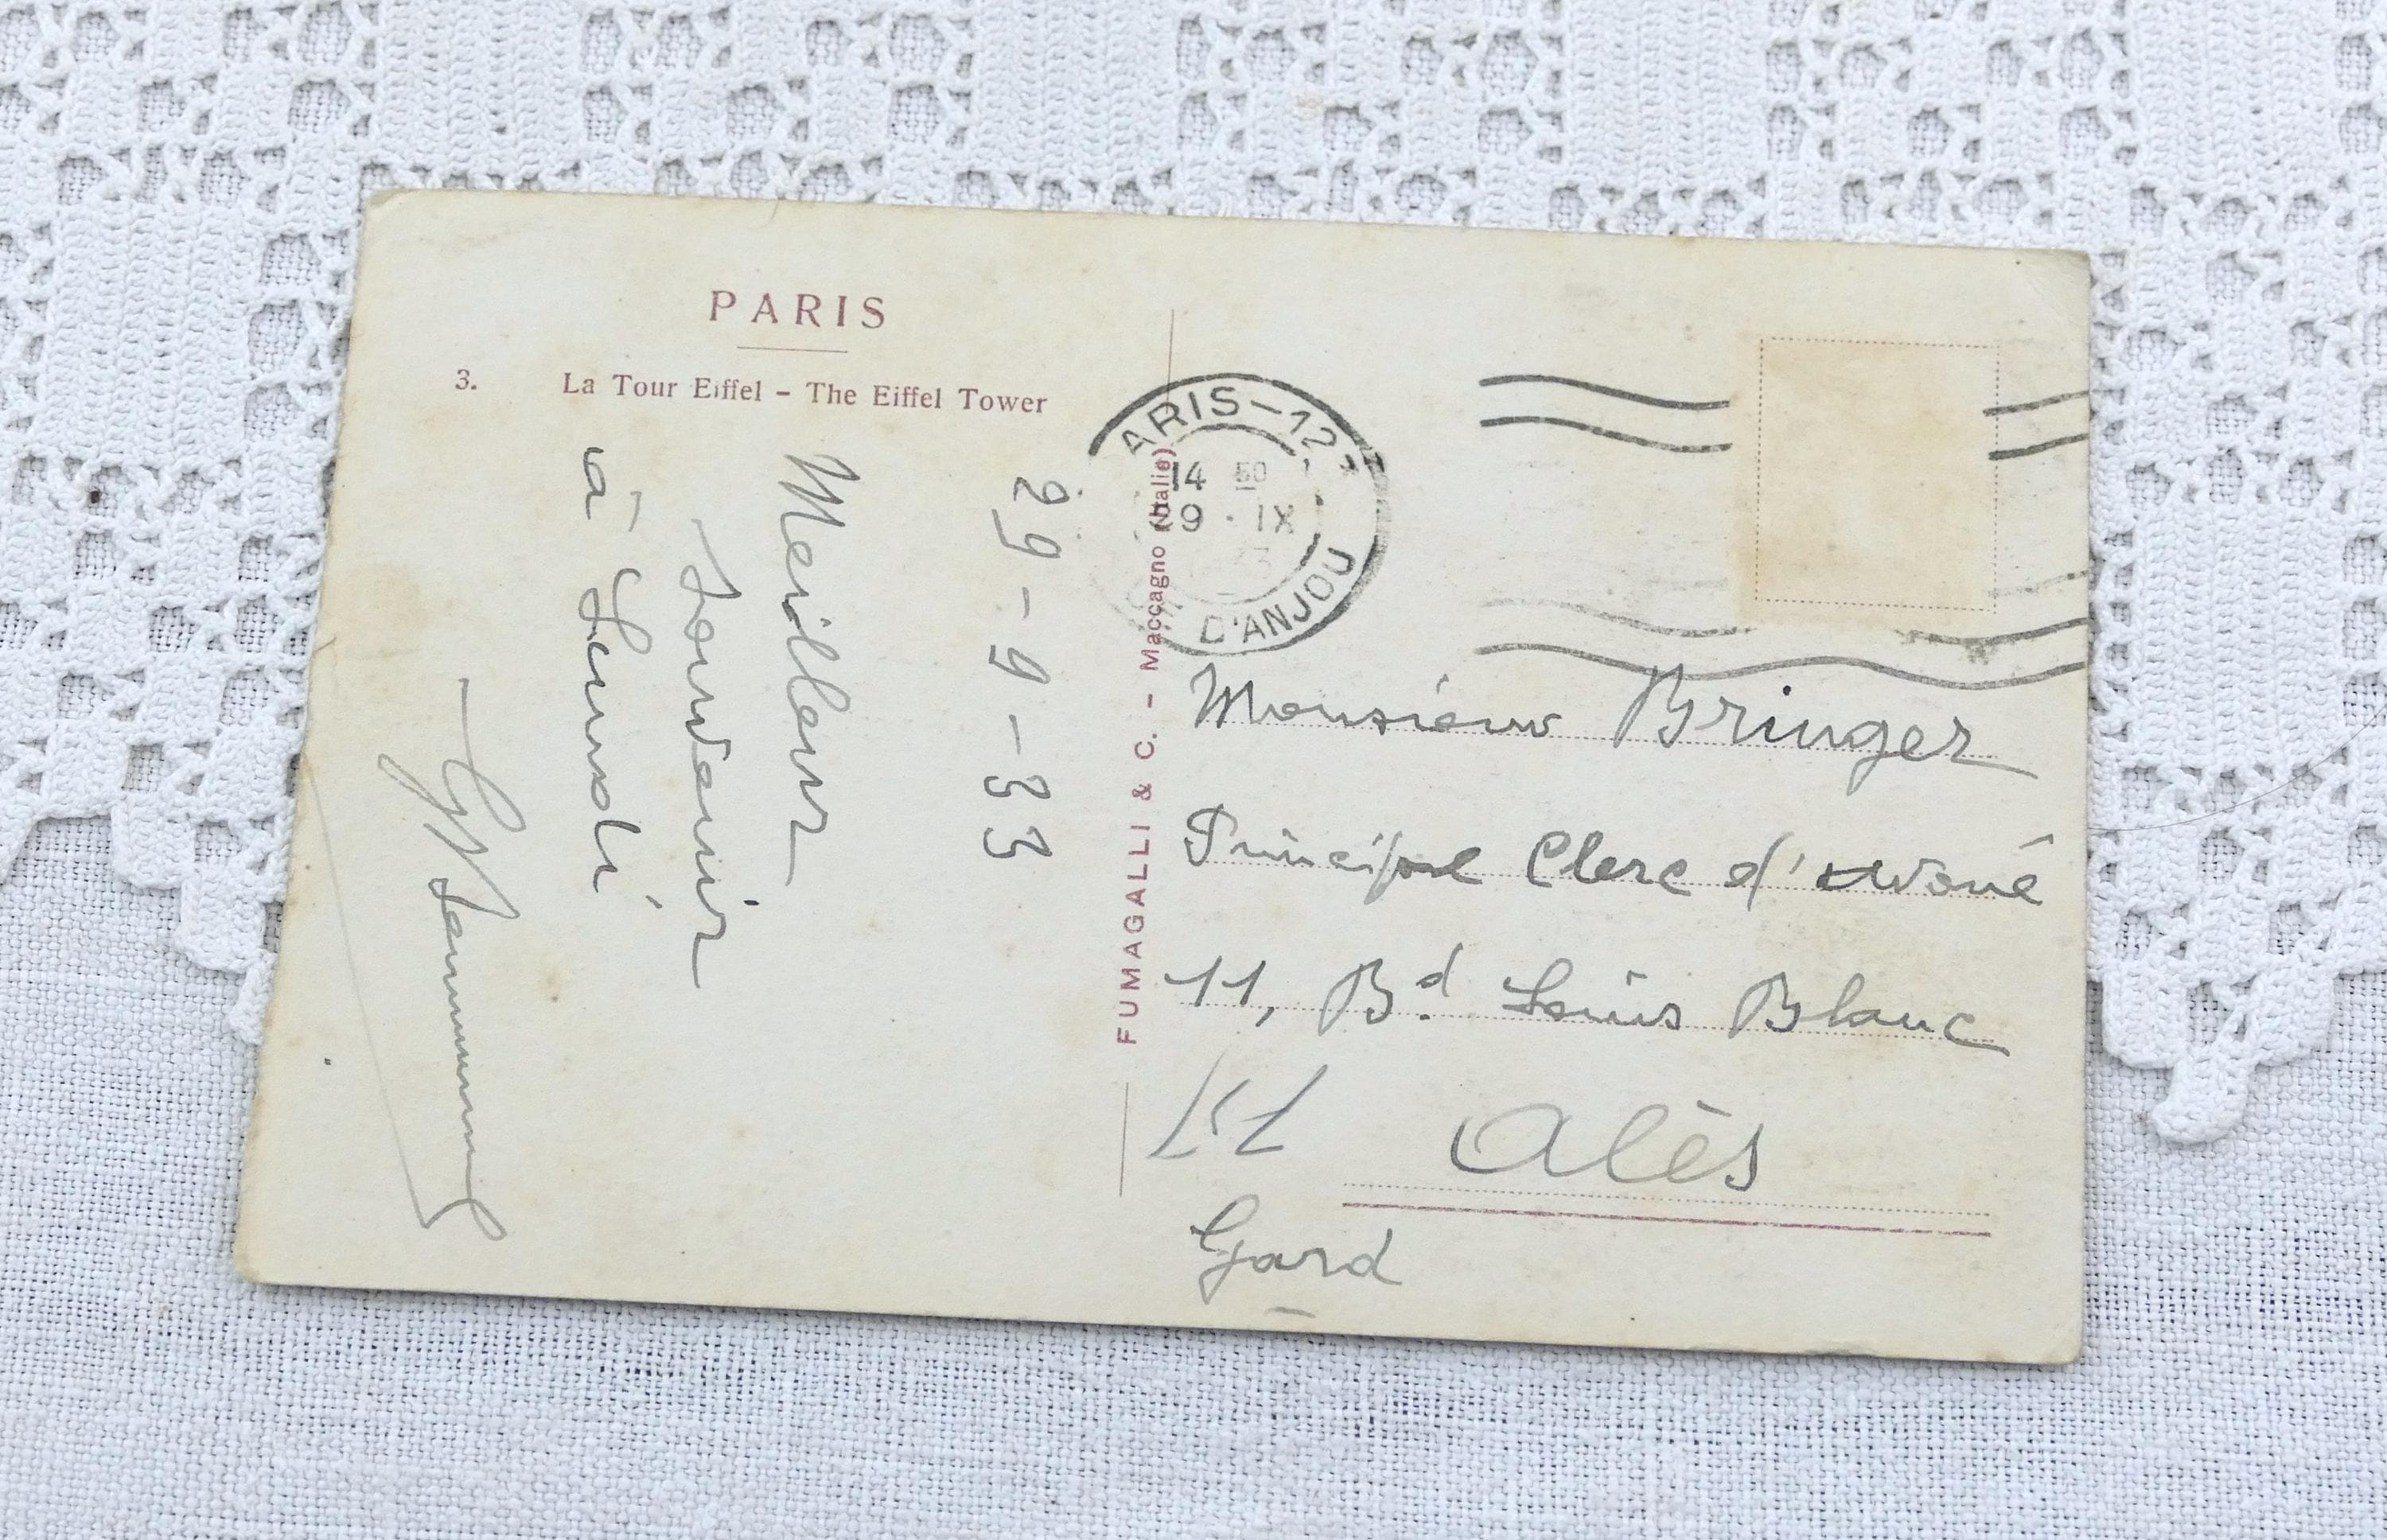 PARIS
3. La Tour Eiffel – The Eiffel Tower
29-9-33
Meilleur
Souvenir
à Lundi
FUMAGALLI & C. - Maccagno (Italie)
ARIS-12
14 30
9 · IX
33
D'ANJOU
Monsieur Bringer
Principal Clerc d'avoué
11, Bd. Louis Blanc
Alès
Gard